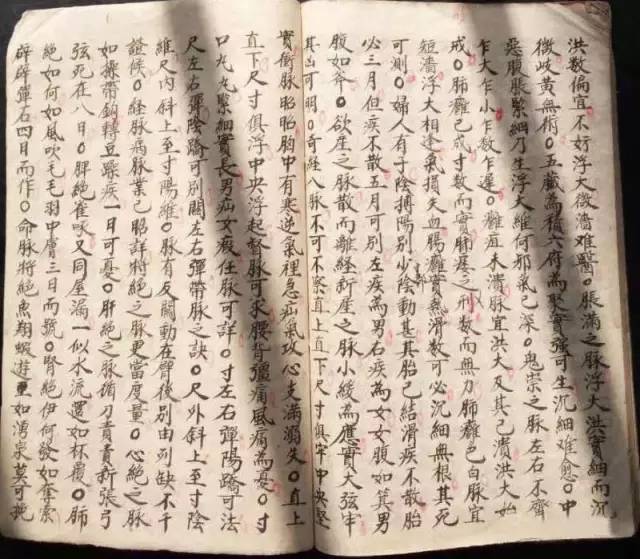 洪数偏宜不好浮大微濇难醫○脹滿之脉浮大洪實細而沉
微岐黄無術○五藏為積六府為聚實强可生沉細难愈○中
惡腹脹緊細乃生浮大維何邪氣已深○鬼祟之脉左右不齊
乍大乍小乍数乍遲○癰疽未潰脉宜洪大及其已潰洪大始
戒○肺癰已成寸数而實肺痿之形数而無力肺癰色白脉宜
短濇浮大相逢氣損失血腸癰實熱滑数可必沉細無根其死
可測○婦人有子陰搏陽别少陰動甚其胎已結滑疾不散胎
必三月但疾不散五月可别左疾為男右疾為女女腹如箕男
腹如斧○欲産之脉散而離経新産之脉小緩為應實大弦牢
其凶可明○奇経八脉不可不察直上直下尺寸俱牢中央堅
實衝脉昭昭胸中有寒逆氣裡急疝氣攻心支滿溺失○直上
直下尺寸俱浮中央浮起督脉可求腰背彊痛風痛為憂○寸
口丸丸緊細實長男疝女瘕任脉可詳○寸左右彈陽蹻可法
尺左右彈陰蹻可别關左右彈帶脉之訣○尺外斜上至寸陰
維尺内斜上至寸陽維○脉有反關動在臂後别由列缺不干
證候○経脉病脉業已昭詳將绝之脉更當度量○心绝之脉
如操帶鈎轉豆躁疾一日可憂○肝绝之脉循刀責責新張弓
弦死在八日○脾绝雀啄又同屋漏一似水流還如杯覆○肺
絶如何如風吹毛毛羽中膚三日而號○腎绝伊何發如奪索
辟辟彈石四日而作○命脉將绝魚翔蝦遊至如湧泉莫可挽